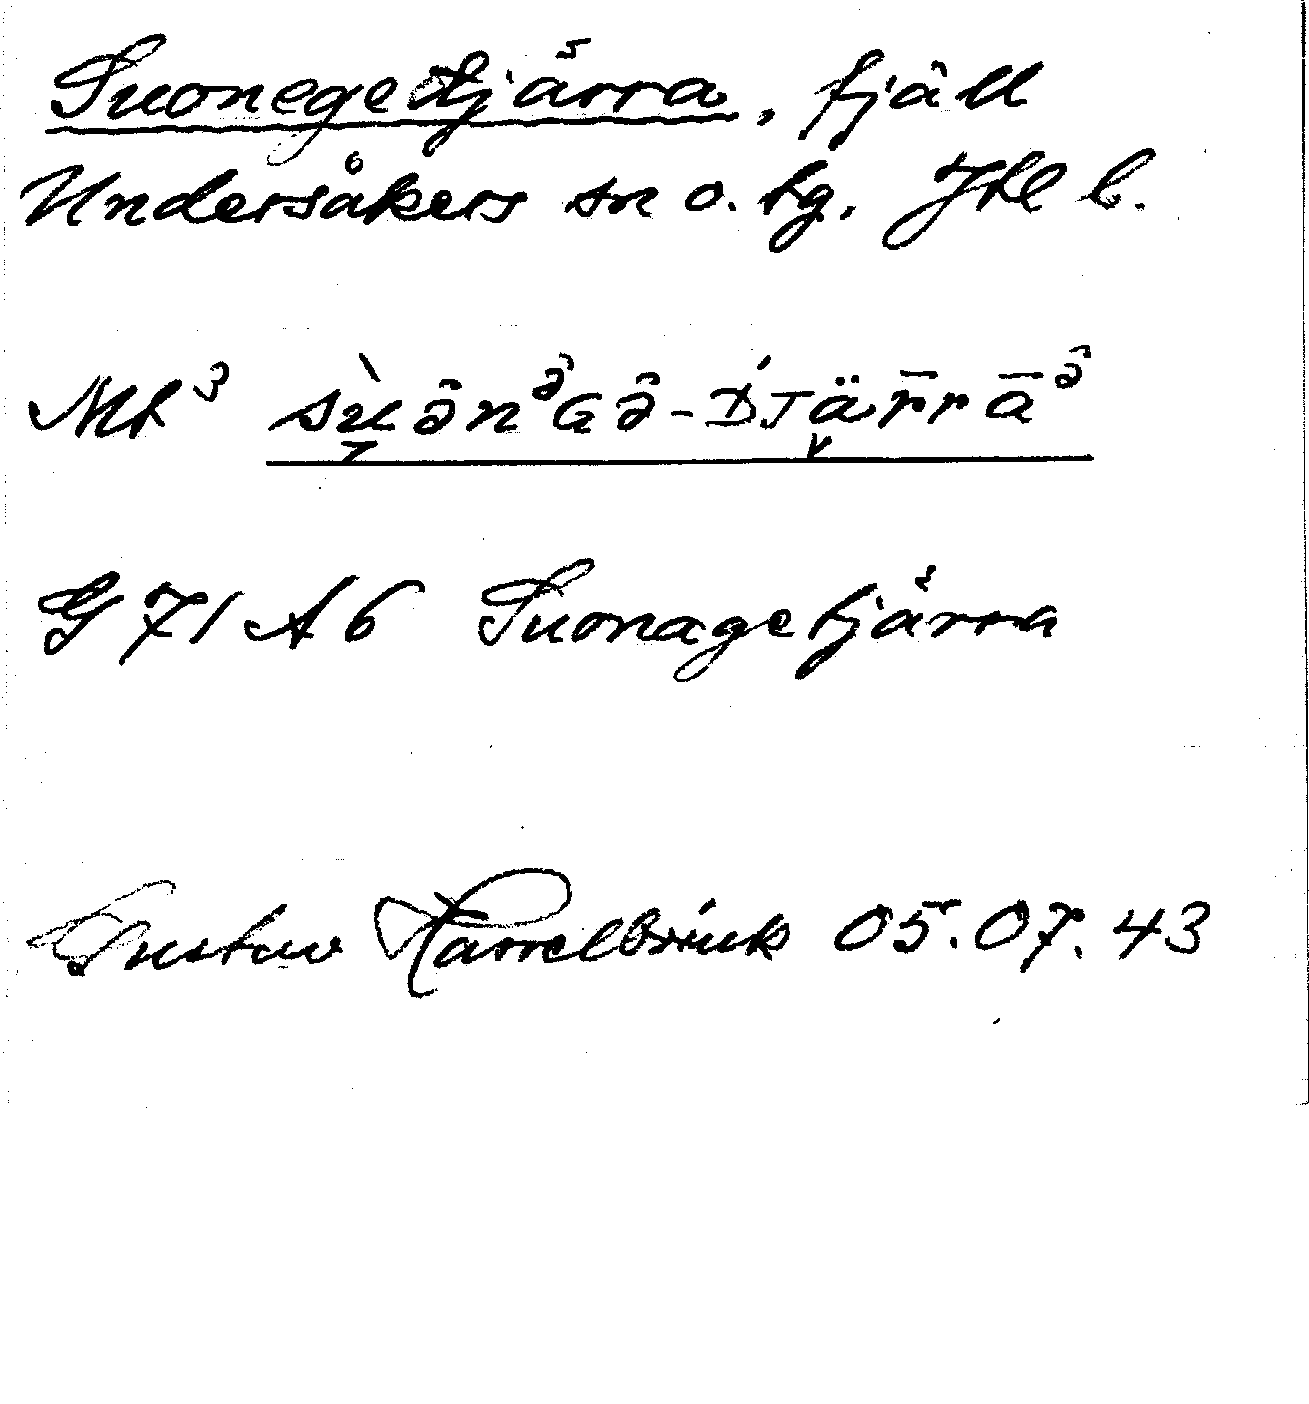 Suonegetjårra, fjäll
Undersåkers sn o. tg. Jtl l.
Mt³ su̯ə̂nᵊ̂Gə̂-D́Jär̄rāᵊ̂
G 71 A 6 Suonagetjårra
Gustav Hasselbrink 05.07.43